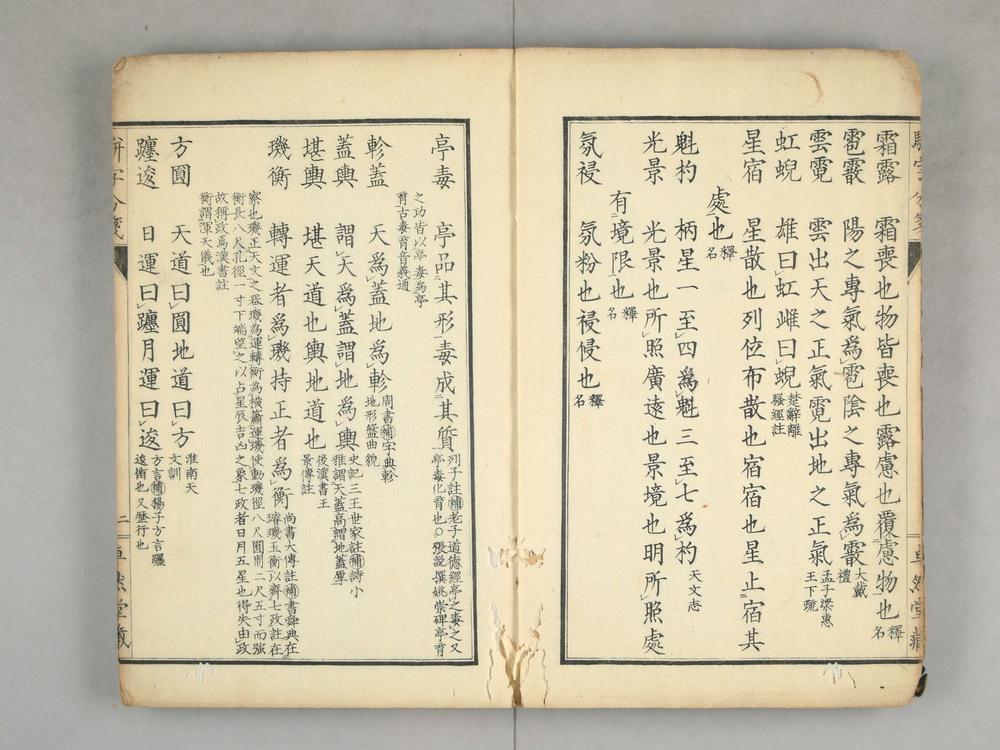 霜露　霜喪也物皆喪也露慮也覆慮物也釋名
雹霰　陽之專氣爲雹陰之專氣爲霰大戴禮
雲霓　雲出天之正氣霓出地之正氣孟子梁惠王下疏
虹蜺　雄曰虹雌曰蜺楚辭離騷經註
星宿　星散也列位布散也宿宿也星止宿其
處也釋名
魁杓　柄星一至四爲魁三至七爲杓天文志
光景　光景也所照廣遠也景境也明所照處
有境限也釋名
氛祲　氛粉也祲侵也釋名
亭毒　亭品其形毒成其質列子註補老子道德經亭之毒之又亭毒化育也○張說撰姚崇碑亭育
之功皆以亭毒爲亭育古毒育音義通
軫蓋　天爲蓋地爲軫周書補字典軫地形盤曲貌
蓋輿　謂天爲蓋謂地爲輿史記三王世家註補詩小雅謂天蓋高謂地蓋厚
堪輿　堪天道也輿地道也後漢書王景傳註
璣衡　轉運者爲璣持正者爲衡尚書大傳註補書舜典在璿璣玉衡以齊七政註在
察也璣正天文之器璣爲運轉衡爲橫簫運璣使動璣徑八尺圓周二尺五寸而強
衡長八尺孔徑一寸下端望之以占星辰吉凶之象七政者日月五星也得失由政
故稱政焉漢書註衡謂渾天儀也
方圓　天道曰圓地道曰方淮南天文訓
躔逡　日運曰躔月運曰逡方言補楊子方言躔逡循也又歷行也
二
卓然堂藏